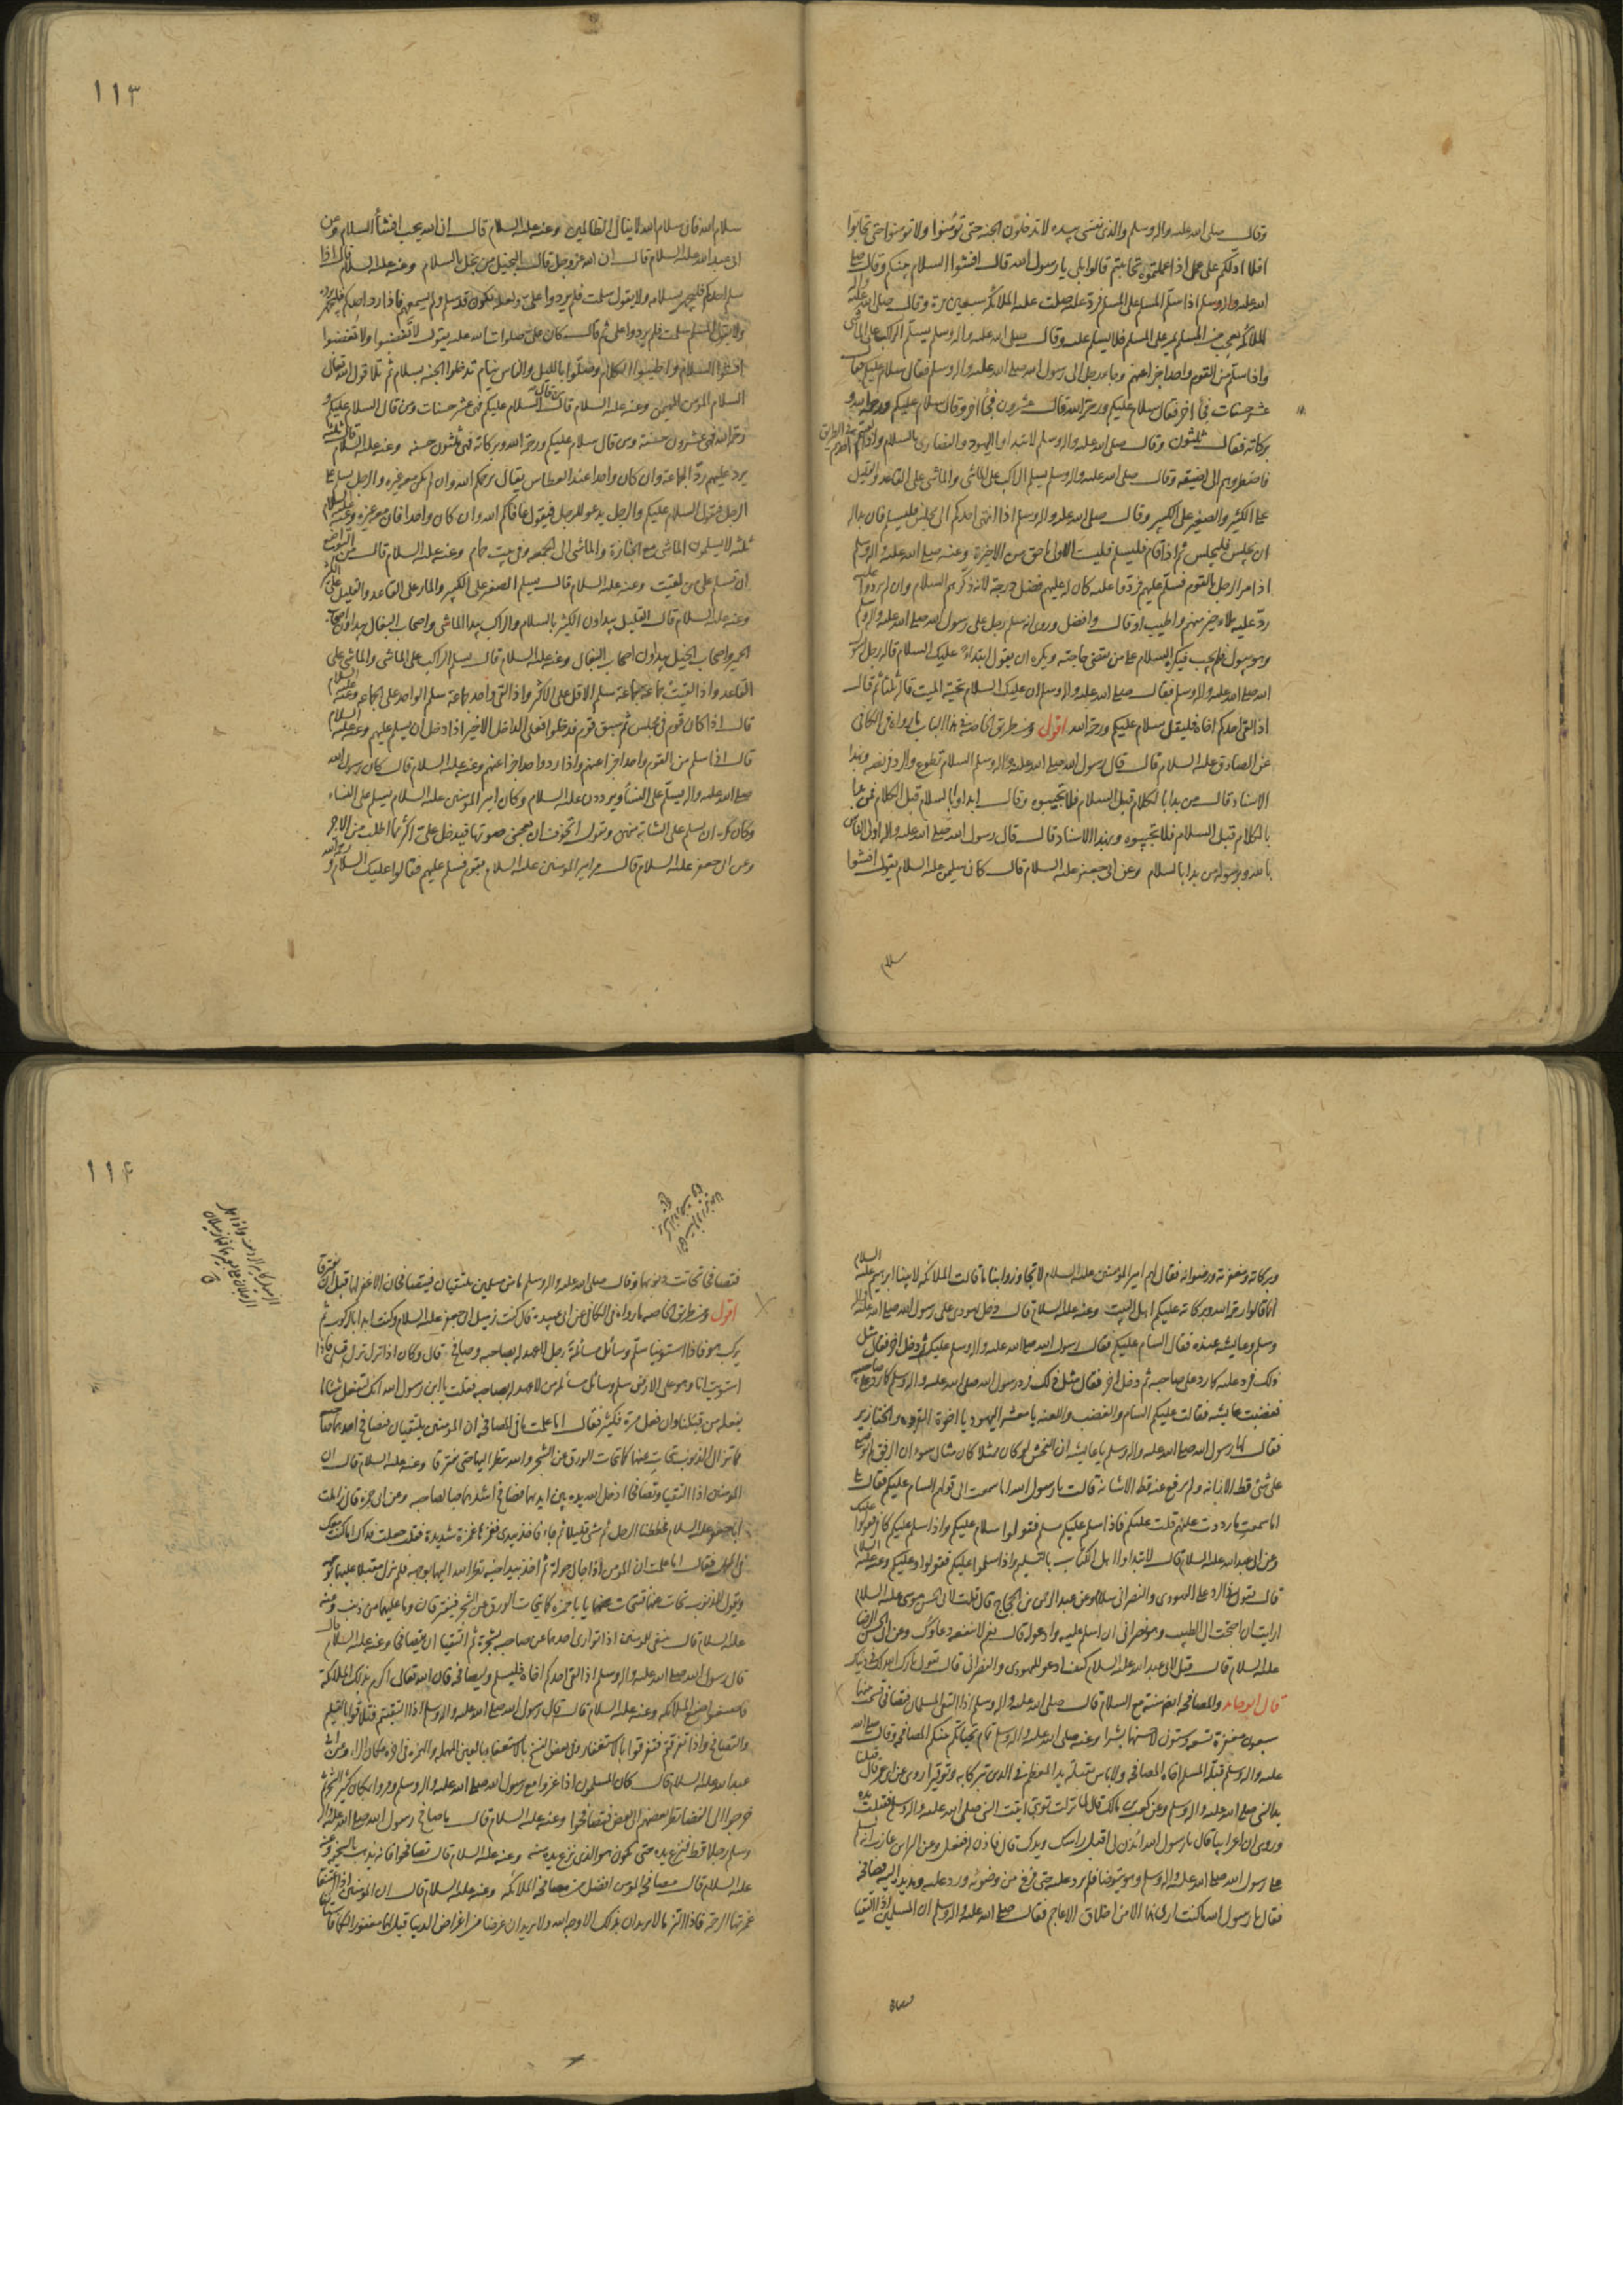 وقال صلى الله عليه واله وسلم والذى نفسى بيده لا تدخلون الجنة حتى تؤمنوا ولا تؤمنوا حتى تحابوا
افلا ادلكم على عمل اذا عملتموه تحاببتم قالوا بلى يا رسول الله قال افشوا السلام بينكم وقال صلى
الله عليه واله وسلم اذا سلم المسلم على المسلم فرد عليه صلت عليه الملائكة سبعين مرة وقال صلى الله عليه واله
الملائكة تعجب من المسلم يمر على المسلم فلا يسلم عليه وقال صلى الله عليه واله وسلم يسلم الراكب على الماشى
واذا سلم من القوم واحد اجزأ عنهم وجاء رجل الى رسول الله صلى الله عليه واله وسلم فقال سلام عليكم فقال
عشر حسنات فجاء اخر فقال سلام عليكم ورحمة الله قال عشرون فجاء اخر وقال سلام عليكم ورحمة الله و
بركاته فقال ثلثون وقال صلى الله عليه واله وسلم لا تبدأوا اليهود والنصارى بالسلام واذا لقيتم احدهم فى الطريق
فاضطروهم الى اضيقه وقال صلى الله عليه واله وسلم يسلم الراكب على الماشى والماشى على القاعد والقليل
على الكثير والصغير على الكبير وقال صلى الله عليه واله وسلم اذا انتهى احدكم الى مجلس فليسلم فان بدا له
ان يجلس فليجلس ثم اذا قام فليسلم فليست الاولى باحق من الاخيرة وعنه صلى الله عليه واله وسلم
اذا مر الرجل بالقوم فسلم عليهم فردوا عليه كان له عليهم فضل درجة لانه ذكرهم السلام وان لم يردوا عليه
رد عليه ملاء خير منهم واطيب او قال وافضل وروى انه سلم رجل على رسول الله صلى الله عليه واله وسلم
وهو يبول فلم يجب فيكره السلام على من يقضى حاجته ويكره ان يقول ابتداء عليك السلام قاله رجل لرسول
الله صلى الله عليه واله وسلم فقال صلى الله عليه واله وسلم ان عليك السلام تحية الميت قالها ثلثا ثم قال
اذا لقى احدكم اخاه فليقل سلام عليكم ورحمة الله اقول ومن طريق الخاصة فى هذا الباب ما رواه فى الكافى
عن الصادق عليه السلام قال قال رسول الله صلى الله عليه واله وسلم السلام تطوع والرد فريضة وبهذا
الاسناد قال من بدا بالكلام قبل السلام فلا تجيبوه وقال ابداوا بالسلام قبل الكلام فمن بدأ
بالكلام قبل السلام فلا تجيبوه وبهذا الاسناد قال قال رسول الله صلى الله عليه واله اولى الناس
بالله وبرسوله من بدا بالسلام وعن ابى جعفر عليه السلام قال كان سليمن عليه السلام يقول افشوا
سلام
١١٣
سلام الله فان سلام الله لا ينال الظالمين وعنه عليه السلام قال ان الله يحب افشاء السلام وعن
ابى عبد الله عليه السلام قال ان الله عز وجل قال البخيل من يبخل بالسلام وعنه عليه السلام قال اذا
سلم احدكم فليجهر بسلامه ولا يقول سلمت فلم يردوا على ولعله يكون قد سلم ولم يسمعهم فاذا رد احدكم فليجهر برده
ولا يقول المسلم سلمت فلم يردوا على ثم قال كان على صلوات الله عليه يقول لا تغضبوا ولا تغضبوا
افشوا السلام واطيبوا الكلام وصلوا بالليل والناس نيام تدخلوا الجنة بسلام ثم تلا قول الله تعالى
السلام المؤمن المهيمن وعنه عليه السلام قال من قال السلام عليكم فهى عشر حسنات ومن قال السلام عليكم و
رحمة الله فهى عشرون حسنة ومن قال سلام عليكم ورحمة الله وبركاته فهى ثلثون حسنة وعنه عليه السلام قال ثلثة
يرد عليهم رد الجماعة وان كان واحدا عند العطاس يقال يرحمكم الله وان لم يكن معه غيره والرجل يسلم على
الرجل فيقول السلام عليكم والرجل يدعو للرجل فيقول عافاكم الله وان كان واحدا فان معه غيره وعنه عليه السلام
ثلثة لا يسلمون الماشى مع الجنازة والماشى الى الجمعة وفى بيت حمام وعنه عليه السلام قال من التواضع
ان تسلم على من لقيت وعنه عليه السلام قال يسلم الصغير على الكبير والمار على القاعد والقليل على الكثير
وعنه عليه السلام قال القليل يبداون الكثير بالسلام والراكب يبدا الماشى واصحاب البغال يبداون اصحاب
الحمير واصحاب الخيل يبداون اصحاب البغال وعنه عليه السلام قال يسلم الراكب على الماشى والماشى على
القاعد واذا لقيت جماعة جماعة سلم الاقل على الاكثر واذا لقى واحد جماعة سلم الواحد على الجماعة وعنه عليه السلام
قال اذا كان قوم فى مجلس ثم سبق قوم فدخلوا فعلى الداخل الاخير اذا دخل ان يسلم عليهم وعنه عليه السلام
قال اذا سلم من القوم واحد اجزا عنهم واذا رد واحد اجزا عنهم وعنه عليه السلام قال كان رسول الله
صلى الله عليه واله يسلم على النساء ويرددن عليه السلام وكان امير المؤمنين عليه السلام يسلم على النساء
وكان يكره ان يسلم على الشابة منهن ويقول اتخوف ان يعجبنى صوتها فيدخل على اكثر مما اطلب من الاجر
وعن ابى جعفر عليه السلام قال مر امير المؤمنين عليه السلام بقوم فسلم عليهم فقالوا عليك السلام ورحمة الله و
وبركاته ومغفرته ورضوانه فقال لهم امير المؤمنين عليه السلام لا تجاوزوا بنا ما قالت الملائكة لابينا ابرهيم عليه السلام
انما قالوا رحمة الله وبركاته عليكم اهل البيت وعنه عليه السلام قال دخل يهودى على رسول الله صلى الله عليه واله
وسلم وعايشة عنده فقال السام عليكم فقال رسول الله صلى الله عليه واله وسلم عليكم ثم دخل اخر فقال مثل
ذلك فرد عليه كما رد على صاحبه ثم دخل اخر فقال مثل ذلك فرد رسول الله صلى الله عليه واله وسلم كما رد على صاحبيه
فغضبت عايشة فقالت عليكم السام والغضب واللعنة يا معشر اليهود يا اخوة القردة والخنازير
فقال لها رسول الله صلى الله عليه واله وسلم يا عايشة ان الفحش لو كان ممثلا كان مثال سوء ان الرفق لم يوضع
على شئ قط الا زانه ولم يرفع عنه قط الا شانه قالت يا رسول الله اما سمعت الى قولهم السام عليكم فقال بلى
اما سمعت ما رددت عليهم قلت عليكم فاذا سلم عليكم مسلم فقولوا سلام عليكم واذا سلم عليكم كافر فقولوا عليك
وعن ابى عبد الله عليه السلام قال لا تبداوا اهل الكتاب بالتسليم واذا سلموا عليكم فقولوا وعليكم وعنه عليه السلام
قال يقول فى الرد على اليهودى والنصرانى سلام وعن عبد الرحمن بن الحجاج قال قلت لابى الحسن موسى عليه السلام
ارايت ان احتجت الى الطبيب وهو نصرانى ان اسلم عليه وادعو له قال نعم لا ينفعه دعاؤك وعن ابى الحسن الرضا
عليه السلام قال قيل لابى عبد الله عليه السلام كيف ادعو لليهودى والنصرانى قال تقول بارك الله لك فى دنياك
قال ابو حامد والمصافحة ايضا سنة مع السلام قال صلى الله عليه واله وسلم اذا التقى المسلمان فتصافحا قسمت بينهما
سبعون مغفرة تسعة وستون لاحسنهما بشرا وعنه صلى الله عليه واله وسلم تمام تحياتكم بينكم المصافحة وقال صلى الله
عليه واله وسلم قبلة المسلم اخاه المصافحة ولا باس بتقبيل يد المعظم فى الدين تبركا به وتوقيرا روى عن ابن عمر قال قبلنا
يد النبى صلى الله عليه واله وسلم وعن كعب بن مالك قال لما نزلت توبتى اتيت النبى صلى الله عليه واله وسلم فقبلت يده
وروى ان اعرابيا قال يا رسول الله ائذن لى اقبل راسك ويدك قال فاذن له ففعل وعن البراء بن عازب انه سلم
على رسول الله صلى الله عليه واله وسلم وهو يتوضا فلم يرد عليه حتى فرغ من وضوئه ورد عليه ومد يده اليه فصافحه
فقال يا رسول الله ما كنت ارى هذا الا من اخلاق الاعاجم فقال صلى الله عليه واله وسلم ان المسلمين اذا التقيا
فتصافحا
١١٤
فتصافحا تحاتت ذنوبهما وقال صلى الله عليه واله وسلم ما من مسلمين يلتقيان فيتصافحان الا غفر لهما قبل ان يتفرقا
اقول ومن طريق الخاصة ما رواه فى الكافى عن ابى عبيدة قال كنت زميل ابى جعفر عليه السلام وكنت ابدا بالركوب ثم
يركب هو فاذا استوينا سلم وسائل مسائلة رجل لا عهد له بصاحبه وصافح قال وكان اذا نزل نزل قبلى فاذا
استويت انا وهو على الارض سلم وسائل مسائلة من لا عهد له بصاحبه فقلت يا ابن رسول الله انك لتفعل شيئا ما
يفعله من قبلنا وان فعل مرة فكثير فقال اما علمت ما فى المصافحة ان المؤمنين يلتقيان فيصافح احدهما صاحبه
فما تزال الذنوب تتحات عنهما كما تتحات الورق عن الشجر والله ينظر اليهما حتى يفترقا وعنه عليه السلام قال ان
المؤمنين اذا التقيا وتصافحا ادخل الله يده بين ايديهما فصافح اشدهما حبا لصاحبه وعن ابى حمزة قال زاملت
ابا جعفر عليه السلام فحططنا الرحل ثم مشى قليلا ثم جاء فاخذ بيدى فغمزها غمزة شديدة فقلت جعلت فداك اوما كنت معك
فى المحمل فقال اما علمت ان المؤمن اذا جال جولة ثم اخذ بيد اخيه نظر الله اليهما بوجهه فلم يزل مقبلا عليهما بوجهه
ويقول للذنوب تحات عنهما فتتحات عنهما يا با حمزة كما يتحات الورق عن الشجر فيفترقان وما عليهما من ذنب وعنه
عليه السلام قال ينبغى للمؤمنين اذا توارى احدهما عن صاحبه بشجرة ثم التقيا ان يتصافحا وعنه عليه السلام قال
قال رسول الله صلى الله عليه واله وسلم اذا لقى احدكم اخاه فليسلم وليصافحه فان الله تعالى اكرم بذلك الملائكة
فاصنعوا صنع الملائكة وعنه عليه السلام قال قال رسول الله صلى الله عليه واله وسلم اذا التقيتم فتلاقوا بالتسليم
والتصافح واذا تفرقتم فتفرقوا بالاستغفار وفى بعض النسخ بالاستعفاء بالعين المهملة والهمزة فى اخره مكان الراء وعن ابى
عبد الله عليه السلام قال كان المسلمون اذا غزوا مع رسول الله صلى الله عليه واله وسلم ومروا بمكان كثير الشجر ثم
خرجوا الى الفضا نظر بعضهم الى بعض فتصافحوا وعنه عليه السلام قال ما صافح رسول الله صلى الله عليه واله
وسلم رجلا قط فنزع يده حتى يكون هو الذى نزع يده منه وعنه عليه السلام قال تصافحوا فانه يذهب بالسخيمة وعنه
عليه السلام قال مصافحة المؤمن افضل من مصافحة الملائكة وعنه عليه السلام قال ان المؤمنين اذا اعتنقا
غمرتهما الرحمة فاذا التزما لا يريدان بذلك الا وجه الله ولا يريدان غرضا من اغراض الدنيا قيل لهما مغفورا لكما فاستانفا